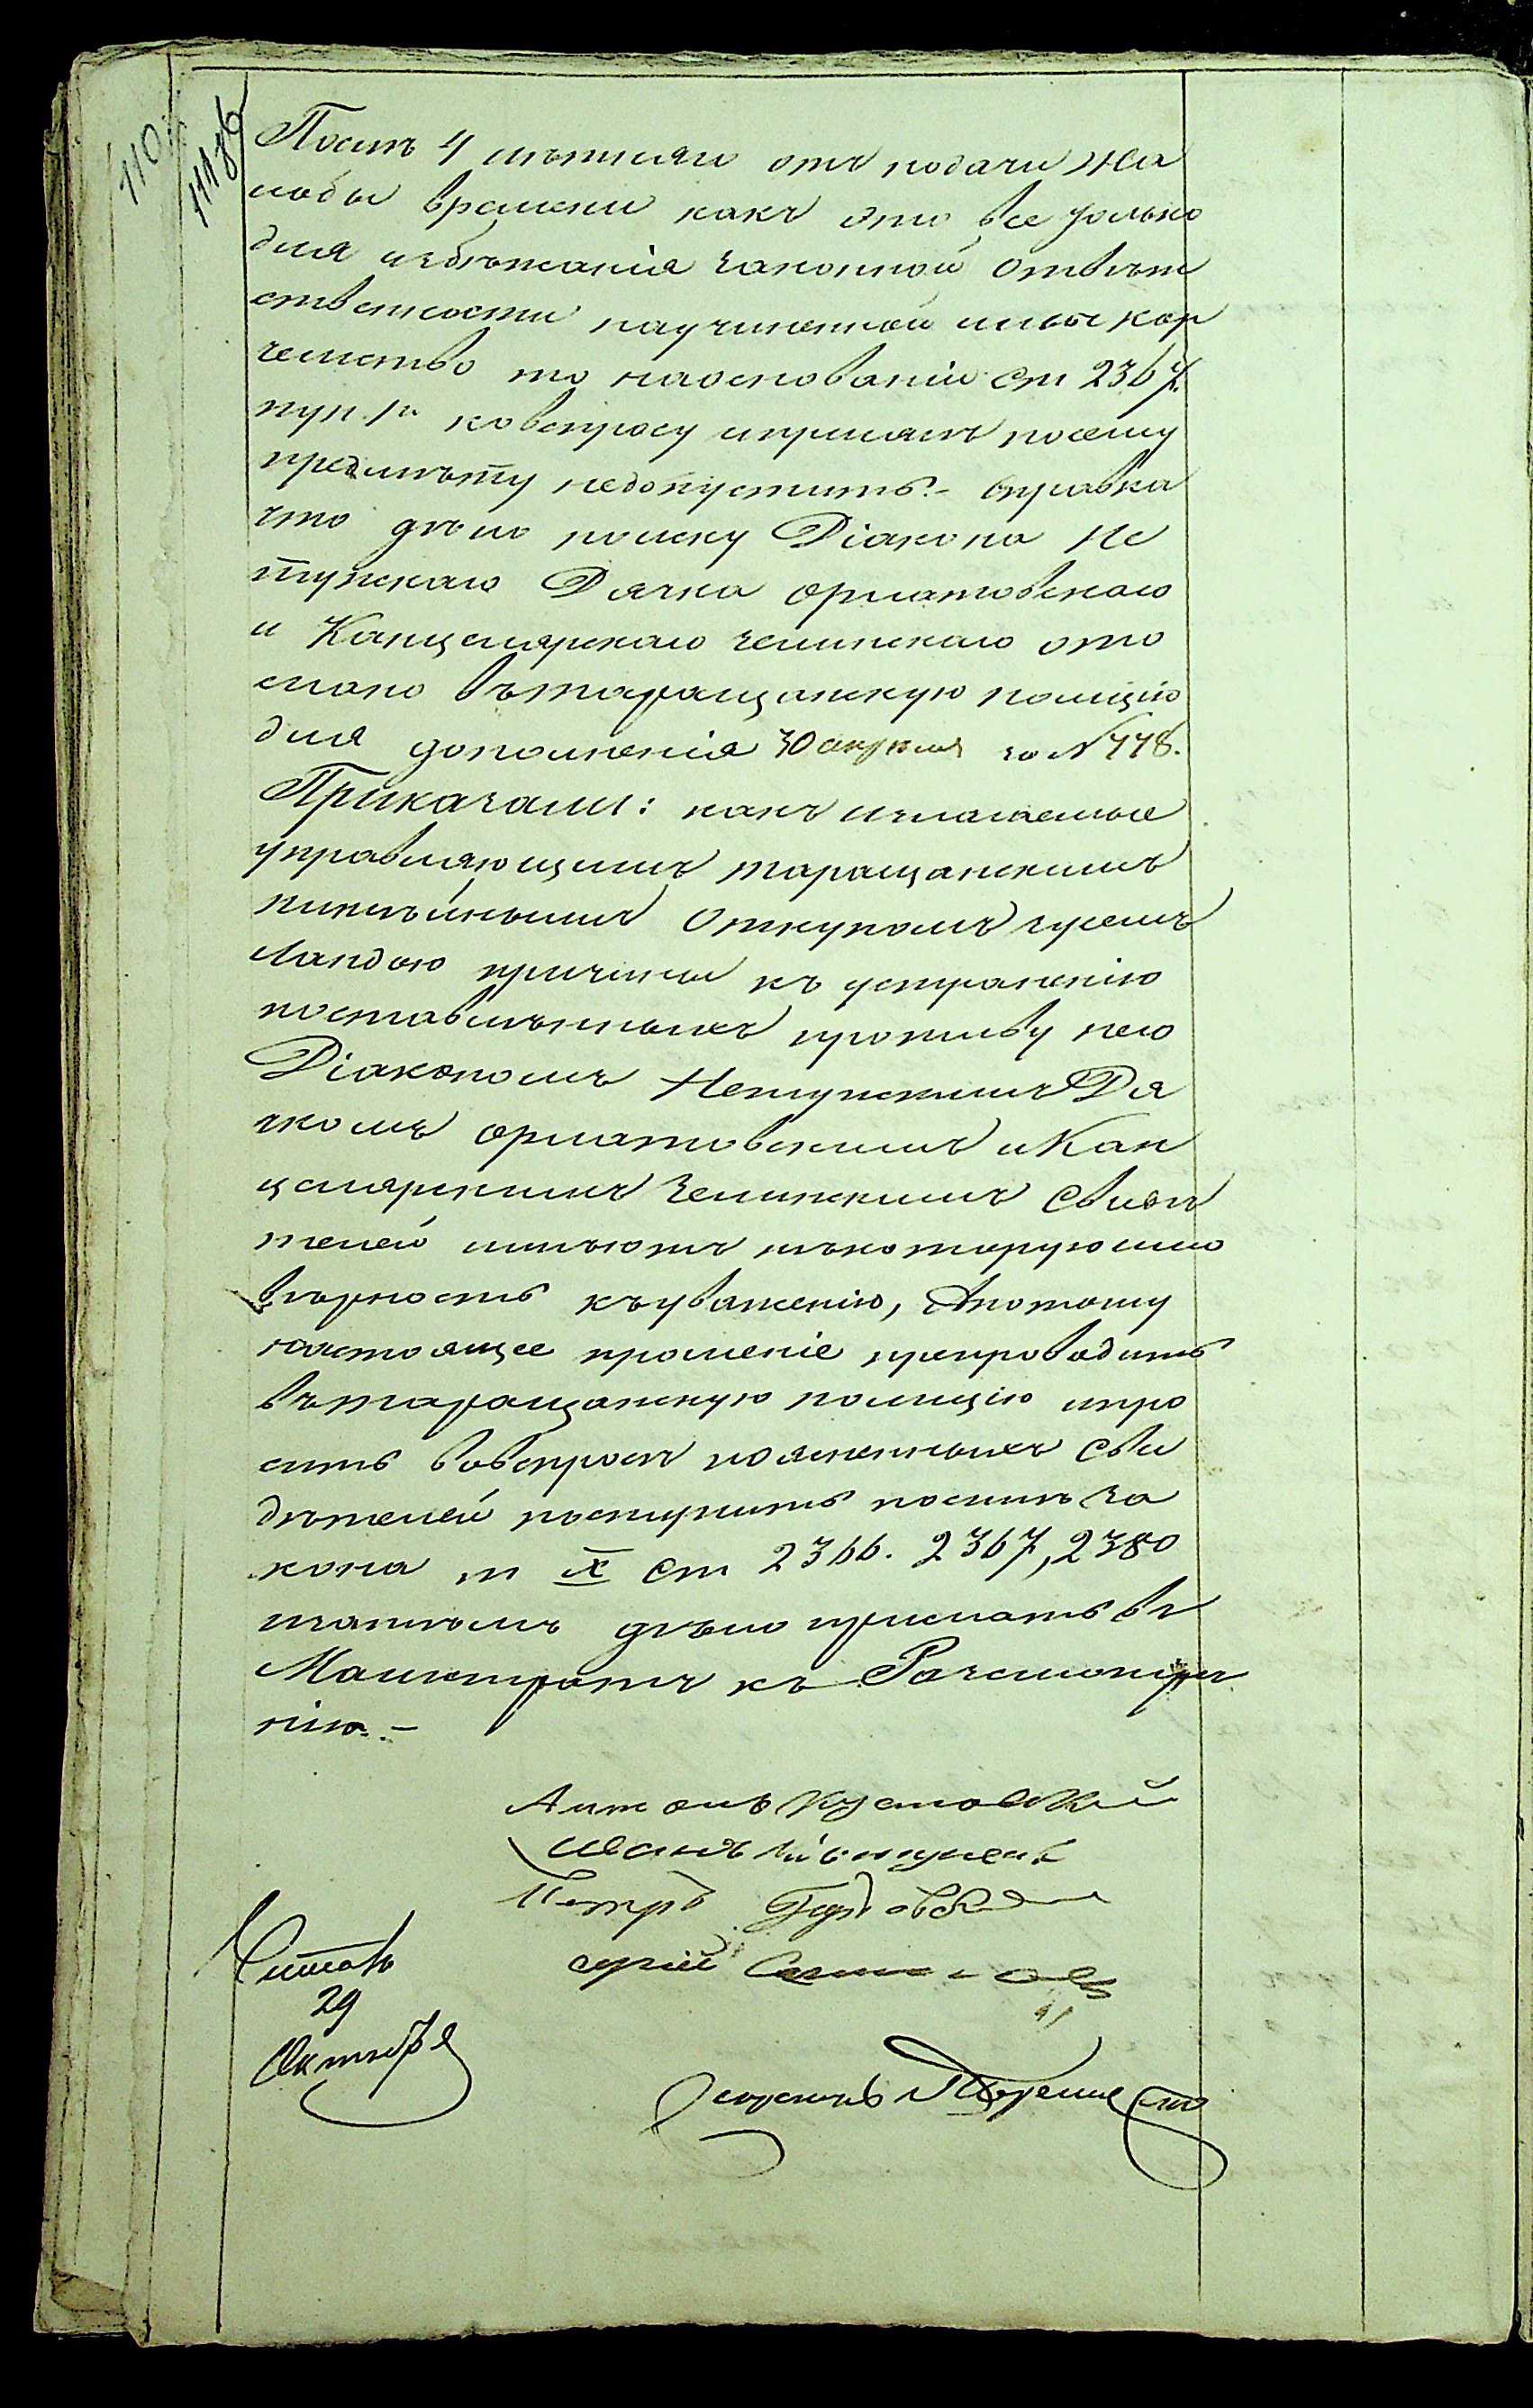 110
111
Послѣ 4 мѣтняги отъ подачи жа
лобы времени какъ это все только
для избѣжанія законной отвѣт
ственности научиненной ими кор
чемство то наоснованіи ст 2367.
пун. 1й ковспросу ихпринять посему
предмѣту недопустить.- Справка
что дѣло поиску Діакона Не
тупскаго Дячка Орлатовскаго
и Канцелярскаго Зелинскаго ото
слано вътаращанскую полицію
для дополненія 30 апреля за N 448.
Приказали: какъ изъясняемые
управляющимъ таращанскимъ
питейнымъ Откупомъ Гуземъ
Ландою причины къ устраненію
поставлѣнныхъ противу него
Діакономъ Нетупскимъ Дя
чкомъ Орлатовскимъ и Кан
целярскимъ Зелинскимъ Свидѣ
телей имѣютъ нѣкоторую ими
вѣрность къуваженію, Апотому
настоящее прошеніе препроводить
вътаращанскую полицію ипро
сить вовспросѣ поясненныхъ Сви
дѣтелей поступить посилѣ За
кона т X ст 2366. 2367, 2380
изатѣмъ дѣло прислать въ
Магистратъ къ Разсмотрѣ
нію.-
Антонъ
Иванъ
Петръ
Читалъ
29
Октября